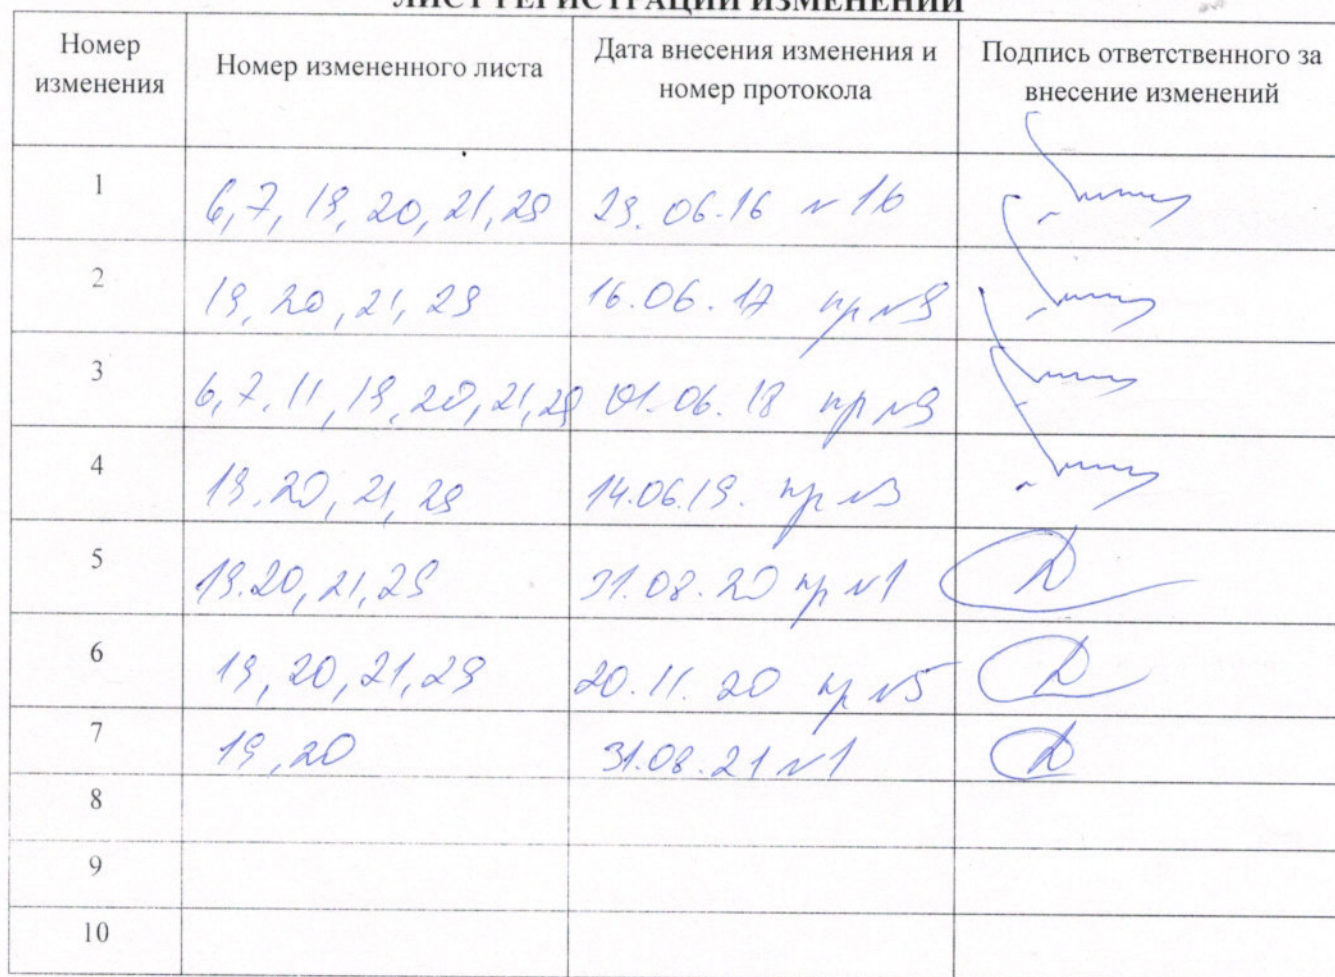 ЛИСТ РЕГИСТРАЦИИ ИЗМЕНЕНИЙ
Номер изменения
Номер измененного листа
Дата внесения изменения и номер протокола
Подпись ответственного за внесение изменений
1 6,7, 19, 20, 21, 29 29. 06.16 № 16
2 19, 20, 21, 29 16.06.17 пр №9
3 6,7.11, 19, 20, 21, 29 01.06.18 пр №9
4 19.20, 21, 29 14.06.19. пр №
5 19.20, 21, 29 31.08.20 пр №1
6 19, 20, 21, 29 20.11.20 пр №5
7 19, 20 31.08.21 №1
8
9
10